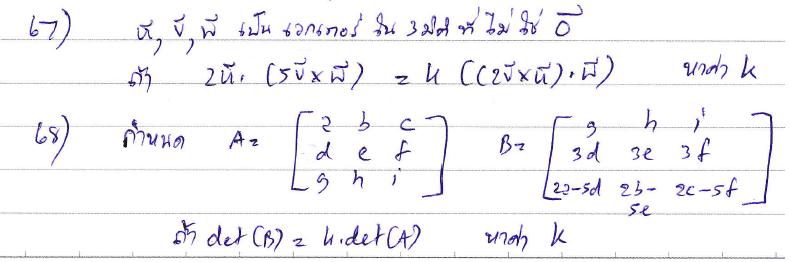 67) ū, v̄, w̄ เป็น เวกเตอร์ ใน 3 มิติ ที่ ไม่ ใช่ 0̄
ถ้า 2ū · (5v̄ × w̄) = k ((2v̄ × ū) · w̄) หาค่า k
68) กำหนด A = [a b c
d e f
g h i] B = [g h i
3d 3e 3f
2a-5d 2b-5e 2c-5f]
ถ้า det(B) = k·det(A) หาค่า k